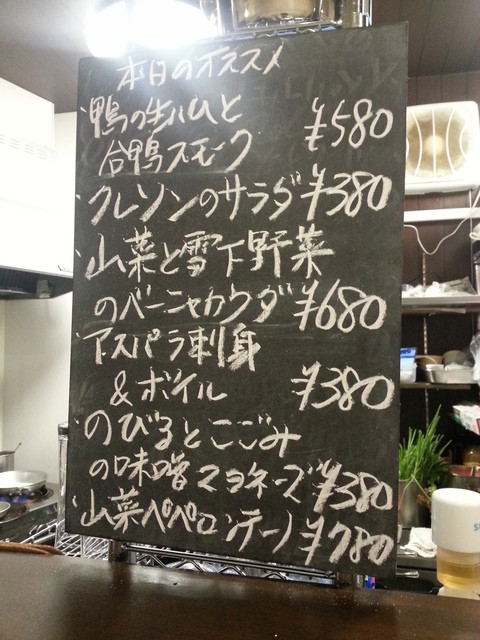 本日のオススメ
・鴨の生ハムと
合鴨スモーク ¥580
・クレソンのサラダ ¥380
・山菜と雪下野菜
のバーニャカウダ ¥680
・アスパラ刺身
&ボイル ¥380
・のびるとこごみ
の味噌マヨネーズ ¥380
・山菜ペペロンテーノ ¥780